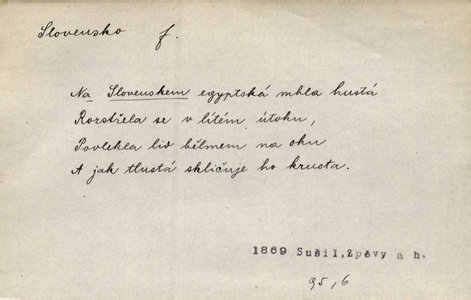 Slovensko f.
Na Slovenskem egyptská mhla hustá
Rozstřela se v lítém útoku,
Povlekla liv bělmem na oku
A jak tlustá skličuje ho krusta.
1869 Sušil, Zpěvy a h.
95, 6